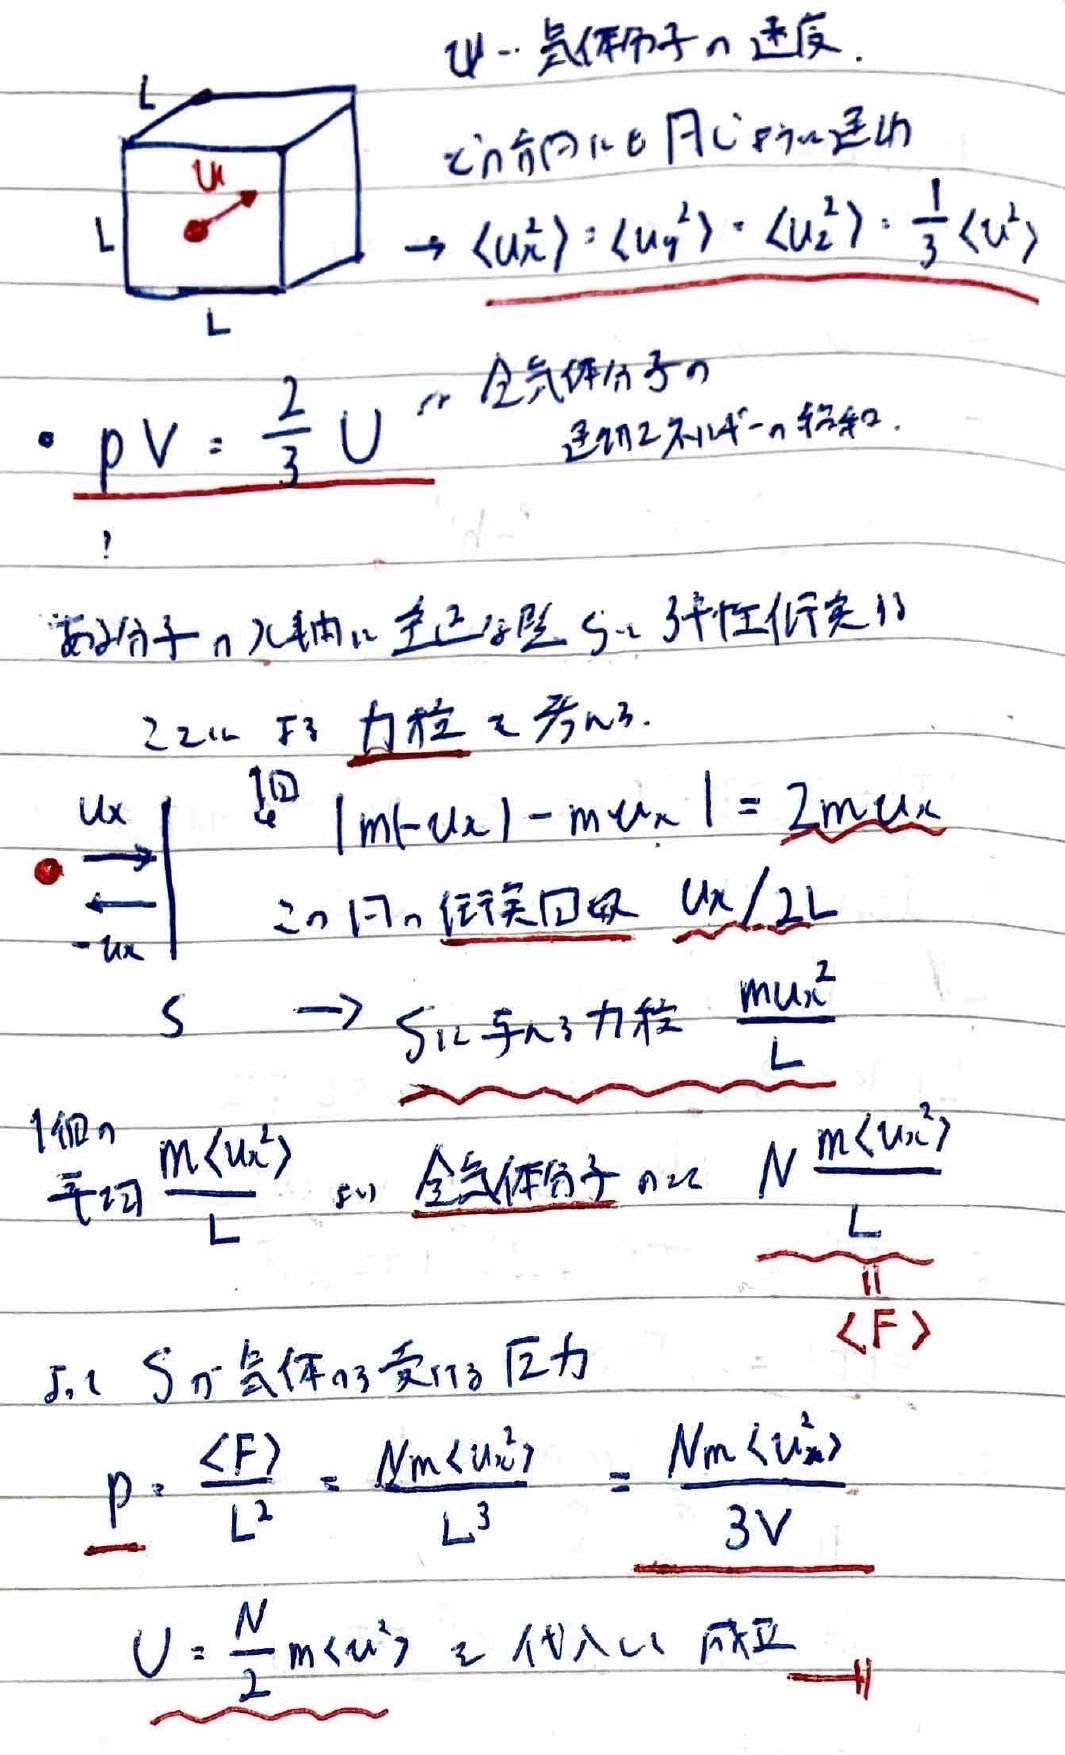 u … 気体分子の速度.
どの方向にも同じように運動
→ ⟨ux²⟩ = ⟨uy²⟩ = ⟨uz²⟩ = 1/3 ⟨u²⟩
L
L
u
L
・ pV = 2/3 U … 全気体分子の
運動エネルギーの総和.
ある分子のx軸に垂直な壁Sに弾性衝突する
ことによる 力積を考える.
1回 |m(-ux) - mux| = 2mux
ux
-ux
S
この間の衝突回数 ux/2L
→ Sに与える力積 mux²/L
1個の平均 m⟨ux²⟩/L より 全気体分子のとき N m⟨ux²⟩/L
= ⟨F⟩
よって Sが気体から受ける圧力
p = ⟨F⟩/L² = Nm⟨ux²⟩/L³ = Nm⟨ux²⟩/3V
U = N/2 m⟨u²⟩ を 代入して 成立